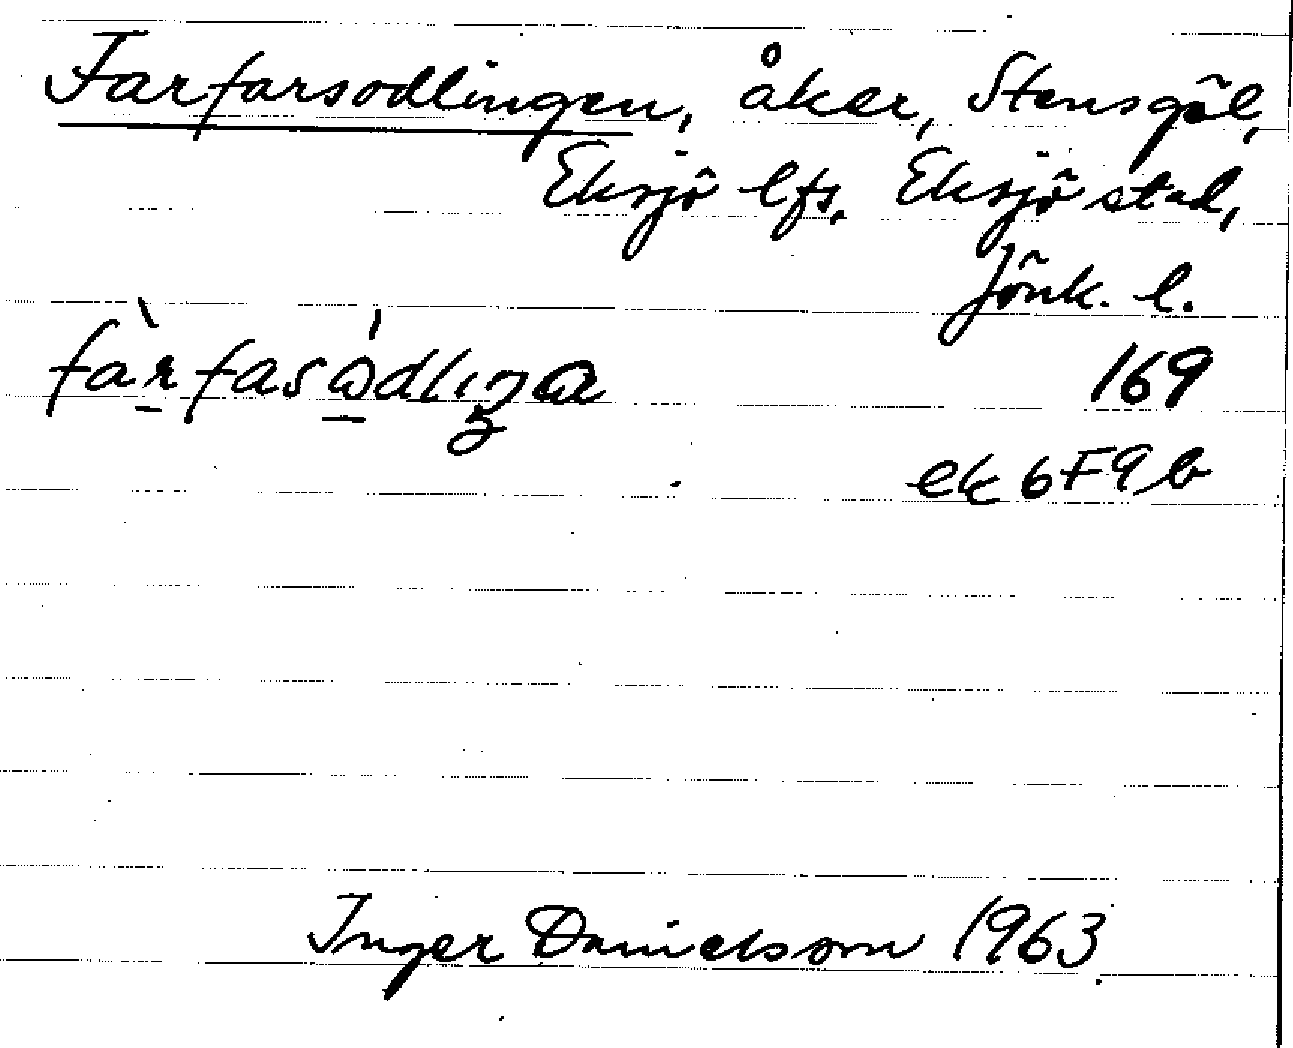 Farfarsodlingen, åker, Stensgöl,
Eksjö lfs, Eksjö stad,
Jönk. l.
169
ek 6F9b
Inger Danielsson 1963